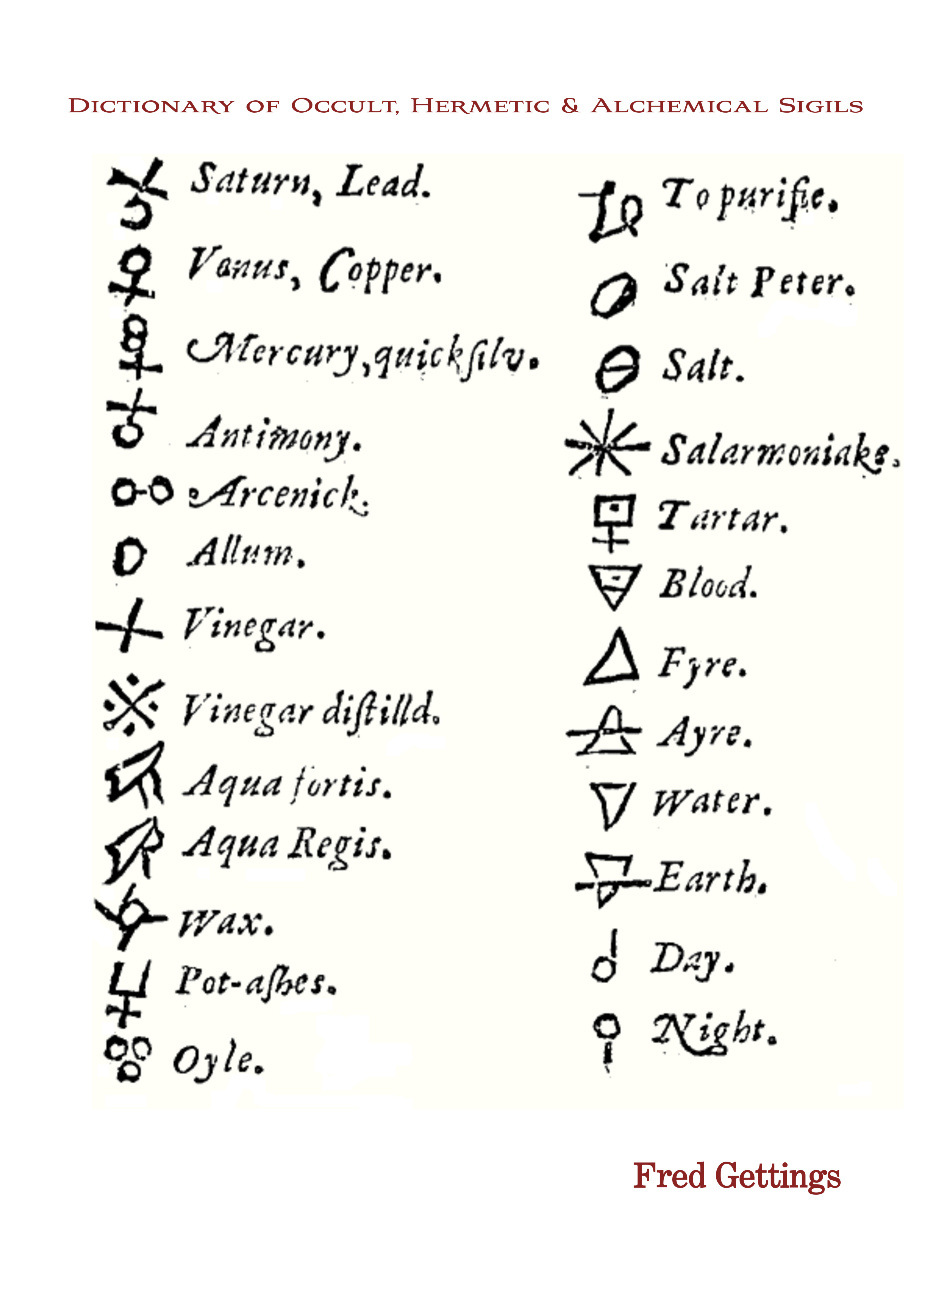 DICTIONARY OF OCCULT, HERMETIC & ALCHEMICAL SIGILS
Saturn, Lead.
Vanus, Copper.
Mercury, quickſilv.
Antimony.
Arcenick.
Allum.
Vinegar.
Vinegar diſtilld.
Aqua fortis.
Aqua Regis.
Wax.
Pot-aſhes.
Oyle.
To purifie.
Salt Peter.
Salt.
Salarmoniake.
Tartar.
Blood.
Fyre.
Ayre.
Water.
Earth.
Day.
Night.
Fred Gettings